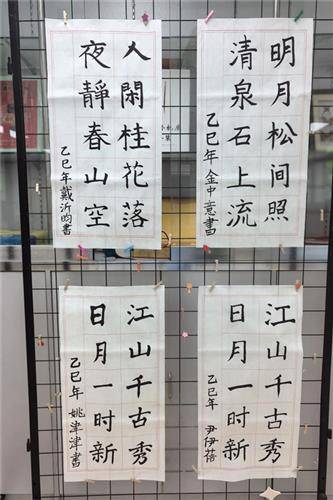 人閑桂花落
夜靜春山空
乙巳年戴沂昀書
明月松间照
清泉石上流
乙巳年 金中意書
江山千古秀
日月一时新
乙巳年 姚津津書
江山千古秀
日月一时新
乙巳年 尹伊蓓